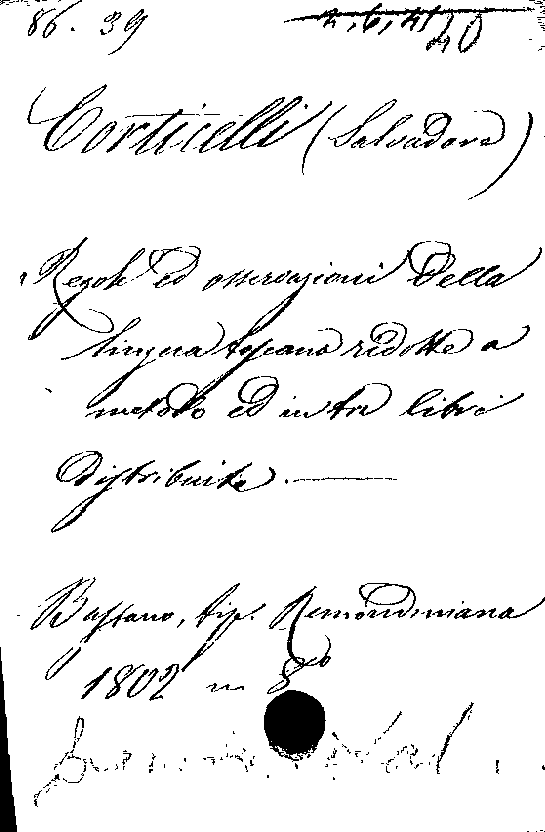 86. 39
40
Corticelli (Salvadore)
Regole ed osservazioni della
lingua toscana ridotte a
metodo ed in tre libri
distribuite.
Bassano, tip. Remondiniana
1802 in 8º